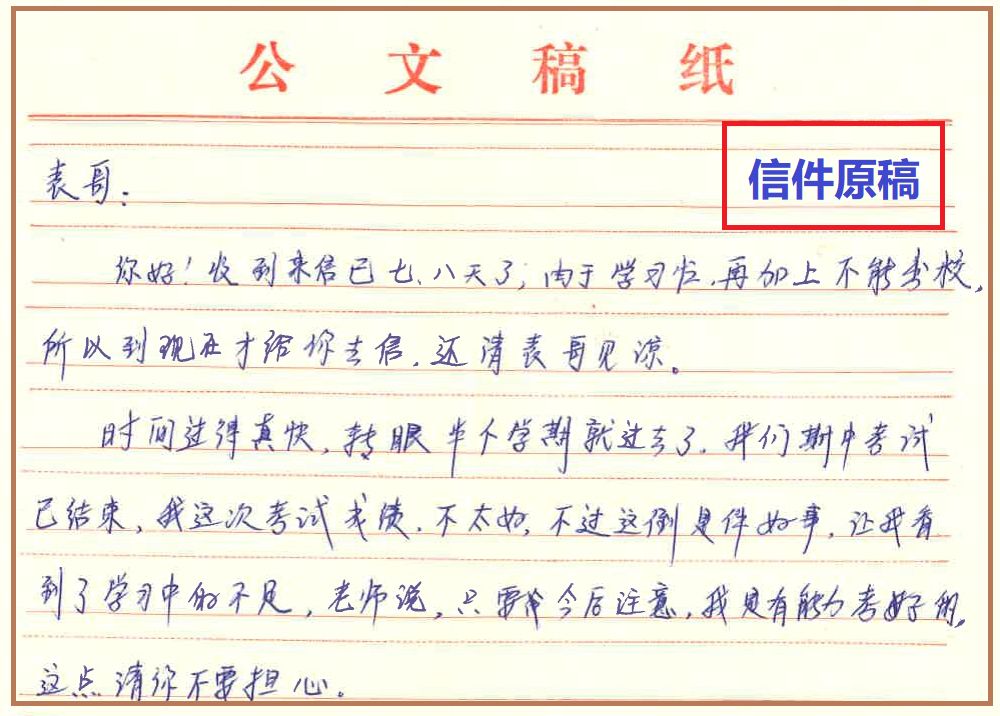 公文稿纸
信件原稿
表哥：
你好！收到来信已七、八天了，由于学习忙，再加上不能出校，
所以到现在才给你去信，还请表哥见谅。
时间过得真快，转眼半个学期就过去了。我们期中考试
已结束，我这次考试成绩，不太好，不过这倒是件好事，让我看
到了学习中的不足，老师说，只要今后注意，我是有能力考好的，
这点请你不要担心。